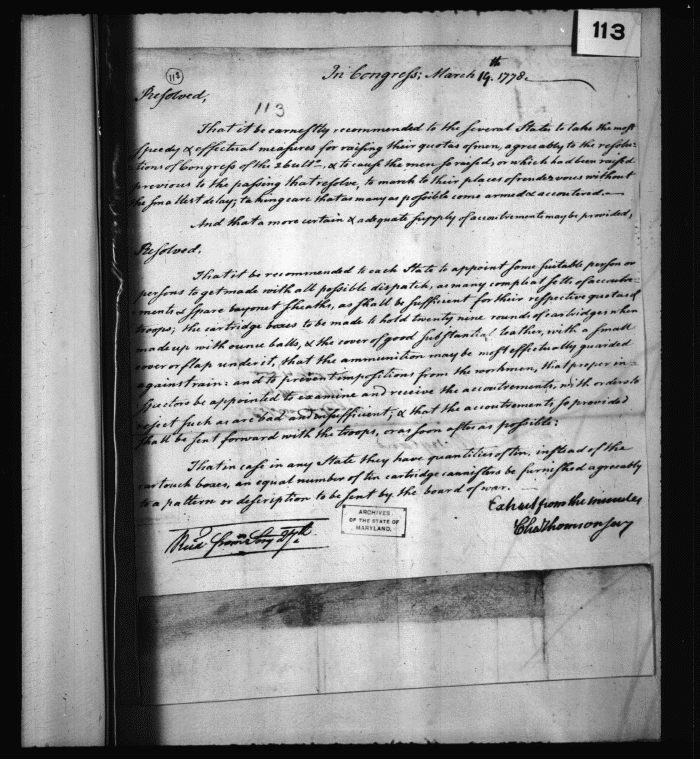 113
115
In Congress; March 19th. 1778.
Resolved,
113
That it be earnestly recommended to the several States to take the most
speedy & effectual measures for raising their quotas of men, agreeably to the resolu-
tions of Congress of the 26 ulto., & to cause the men so raised, or which had been raised
previous to the passing that resolve, to march to their places of rendezvous without
the smallest delay; taking care that as many as possible come armed & accoutered.
And that a more certain & adequate supply of accoutrements may be provided,
Resolved,
That it be recommended to each State to appoint some suitable person or
persons to get made with all possible dispatch, as many compleat setts of accoutre-
ments & spare bayonet sheaths, as shall be sufficient for their respective quotas of
troops; the cartridge boxes to be made to hold twenty nine rounds of cartridges when
made up with ounce balls, & the cover of good substantial leather, with a small
cover or flap under it, that the ammunition may be most effectually guarded
against rain: and to prevent impositions from the workmen, that proper in-
spectors be appointed to examine and receive the accoutrements, with orders to
reject such as are bad and insufficient; & that the accoutrements so provided
shall be sent forward with the troops, or as soon after as possible:
That in case in any State they have quantities of tin, instead of the
cartouch boxes, an equal number of tin cartridge cannisters be furnished agreeably
to a pattern or description to be sent by the board of war.
Extract from the minutes
Chas Thomson secy
ARCHIVES
OF THE STATE OF
MARYLAND.